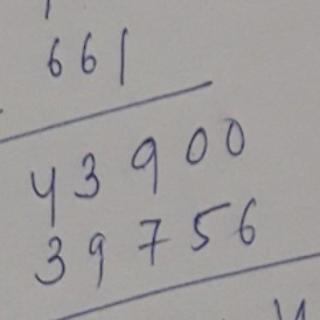 661
43900
39756